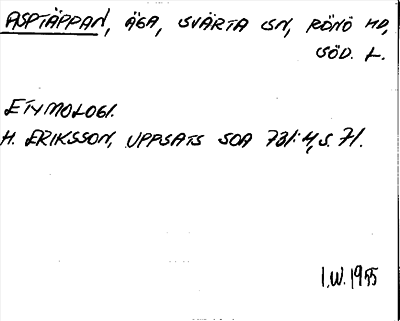 ASPTÄPPAN, ÄGA, SVÄRTA SN, RÖNÖ HD,
SÖD. L.
ETYMOLOGI.
H. ERIKSSON, UPPSATS SOA 731:4, S. 71.
I.W. 1955